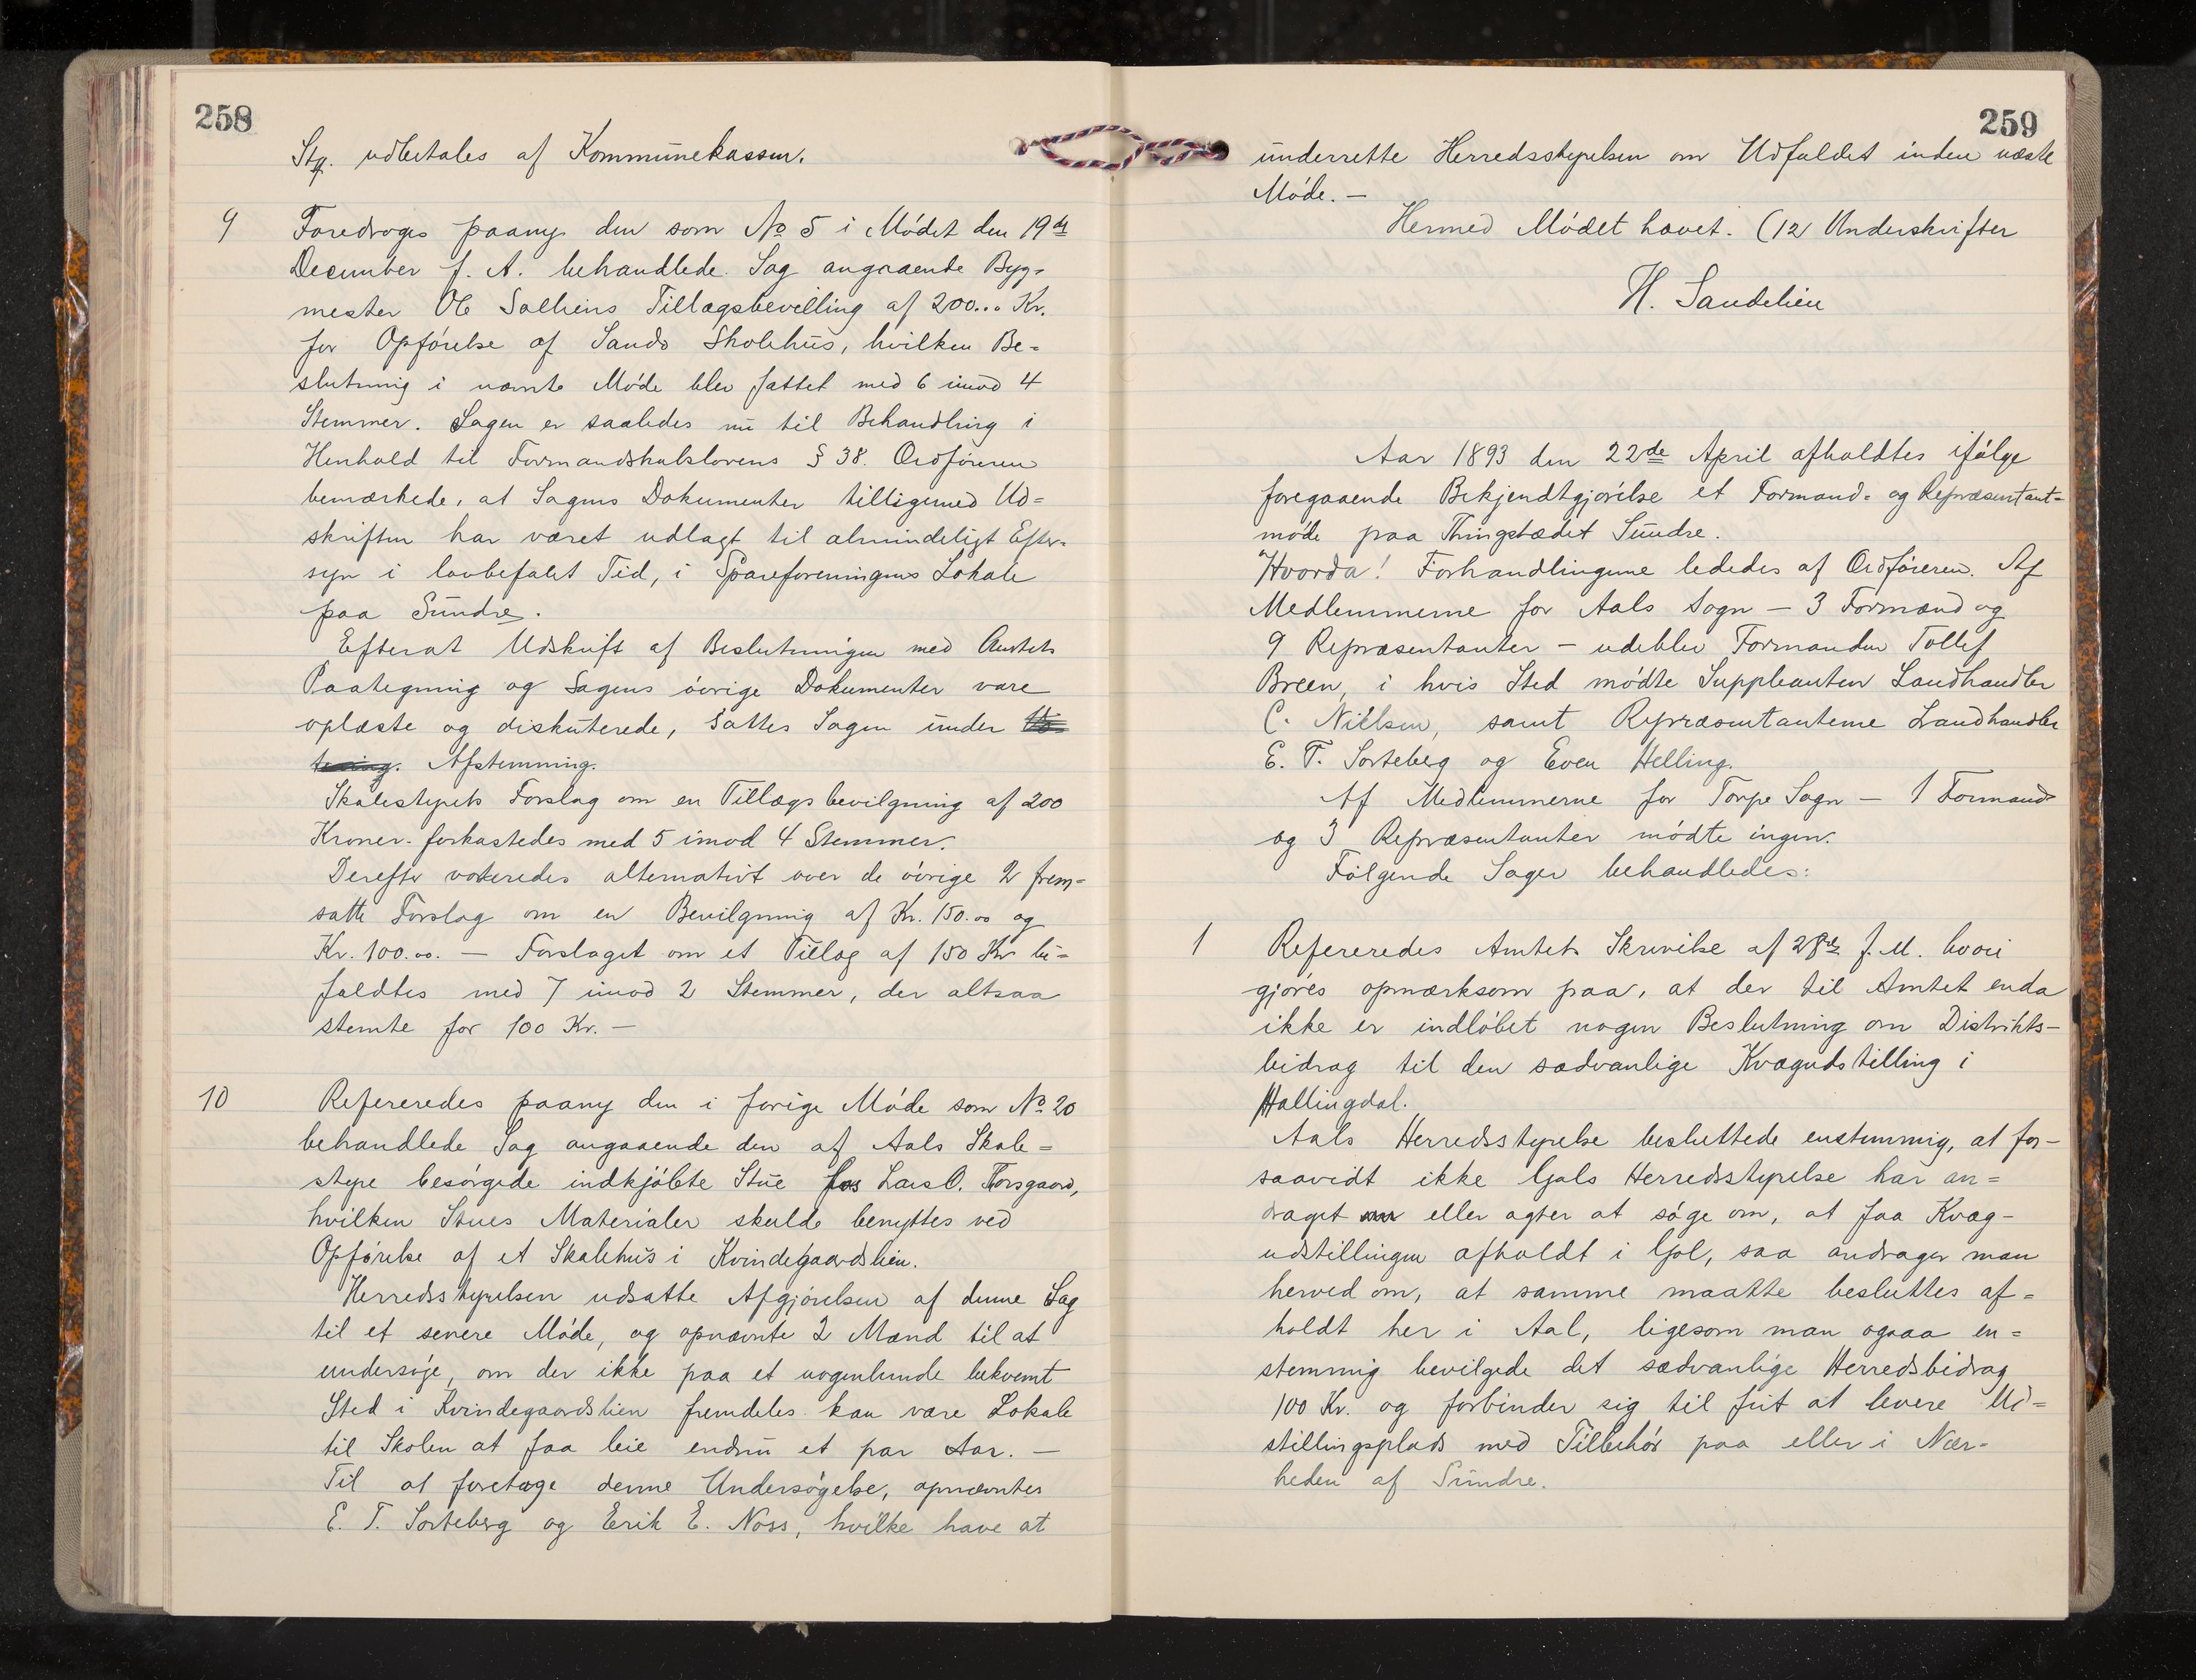 258
Stq. udbetales af Kommunekassen.
9 Foredroges paany den som No 5 i Mödet den 19de
December f. A. behandlede Sag angaaende Byg-
mester Ol Solheins Tillægsbevilling af 200... Kr.
for Opförelse af Sando Skolehus, hvilken Be=
slutning i nævnte Möde blev fattet med 6 imod 4
Stemmer. Sagen er saaledes nu til Behandling i
Henhold til Formandskabslovens § 38. Ordföreren
bemærkede, at Sagens Dokumenter tilligemed Ud=
skriften har været udlagt til almindeligt Efter-
syn i lovbefalet Tid, i Spareforeningens Lokale
paa Sundre.
Efterat Udskrift af Beslutningen med Amtets
Paategning og Sagens övrige Dokumenter vare
oplæste og diskuterede, sattes Sagen under Vo=
tering. Afstemming.
Skolestyrets Forslag om en Tillægsbevilgning af 200
Kroner forkastedes med 5 imod 4 Stemmer.
Derefter voteredes alternativt over de övrige 2 frem=
satte Forslag om en Bevilgning af Kr. 150.00 og
Kr. 100.00. — Forslaget om et Tillæg af 150 Kr bi=
faldtes med 7 imod 2 Stemmer, der altsaa
stemte for 100 Kr. —
10 Refereredes paany den i forige Möde som No 20
behandlede Sag angaaende den af Aals Skole=
styre besörgede indkjöbte Stue fra Lars O. Thorsgaard,
hvilken Stues Materialer skulde benyttes ved
Opförelse af et Skolehus i Kvindegaardslien.
Herredsstyrelsen udsatte Afgjörelsen af denne Sag
til et senere Möde, og opnævnte 2 Mænd til at
undersöge, om der ikke paa et nogenlunde bekvemt
Sted i Kvindegaardslien fremdeles kan være Lokale
til Skolen at faa leie endnu et par Aar. —
Til at foretage denne Undersögelse, opnævntes
E. T. Sorteberg og Erik E. Noss, hvilke have at
259
underrette Herredsstyrelsen om Udfaldet inden næste
Möde. —
Hermed Mödet hævet. (12 Underskrifter
H. Sandelien
Aar 1893 den 22de April afholdtes ifölge
foregaaende Bekjendtgjörelse et Formand- og Repræsentant=
möde paa Thingstedet Sundre.
Hvorda! Forhandlingerne lededes af Ordföreren. Af
Medlemmerne for Aals Sogn — 3 Formænd og
9 Repræsentanter — udeblev Formanden Tollef
Breen, i hvis Sted mödte Suppleanten Landhandler
C. Nielsen, samt Repræsentanterne Landhandler
E. T. Sorteberg og Even Helling.
Af Medlemmerne for Torpe Sogn — 1 Formand
og 3 Repræsentanter mödte ingen.
Fölgende Sager behandledes:
1 Refereredes Amtets Skrivelse af 28de f. M. hvori
gjöres opmærksom paa, at der til Amtet enda
ikke er indlöbet nogen Beslutning om Distrikts-
bidrag til den sædvanlige Kvægudstilling i
Hallingdal.
Aals Herredsstyrelse besluttede enstemmig, at for-
saavidt ikke Gols Herredsstyrelse har an=
draget om eller agter at söge om, at faa Kvæg-
udstillingen afholdt i Gol, saa andrager man
herved om, at samme maatte besluttes af=
holdt her i Aal, ligesom man ogsaa en=
stemmig bevilgede det sædvanlige Herredsbidrag
100 Kr. og forbinder sig til frit at levere Ud=
stillingsplads med Tilbehör paa eller i Nær-
heden af Sundre.